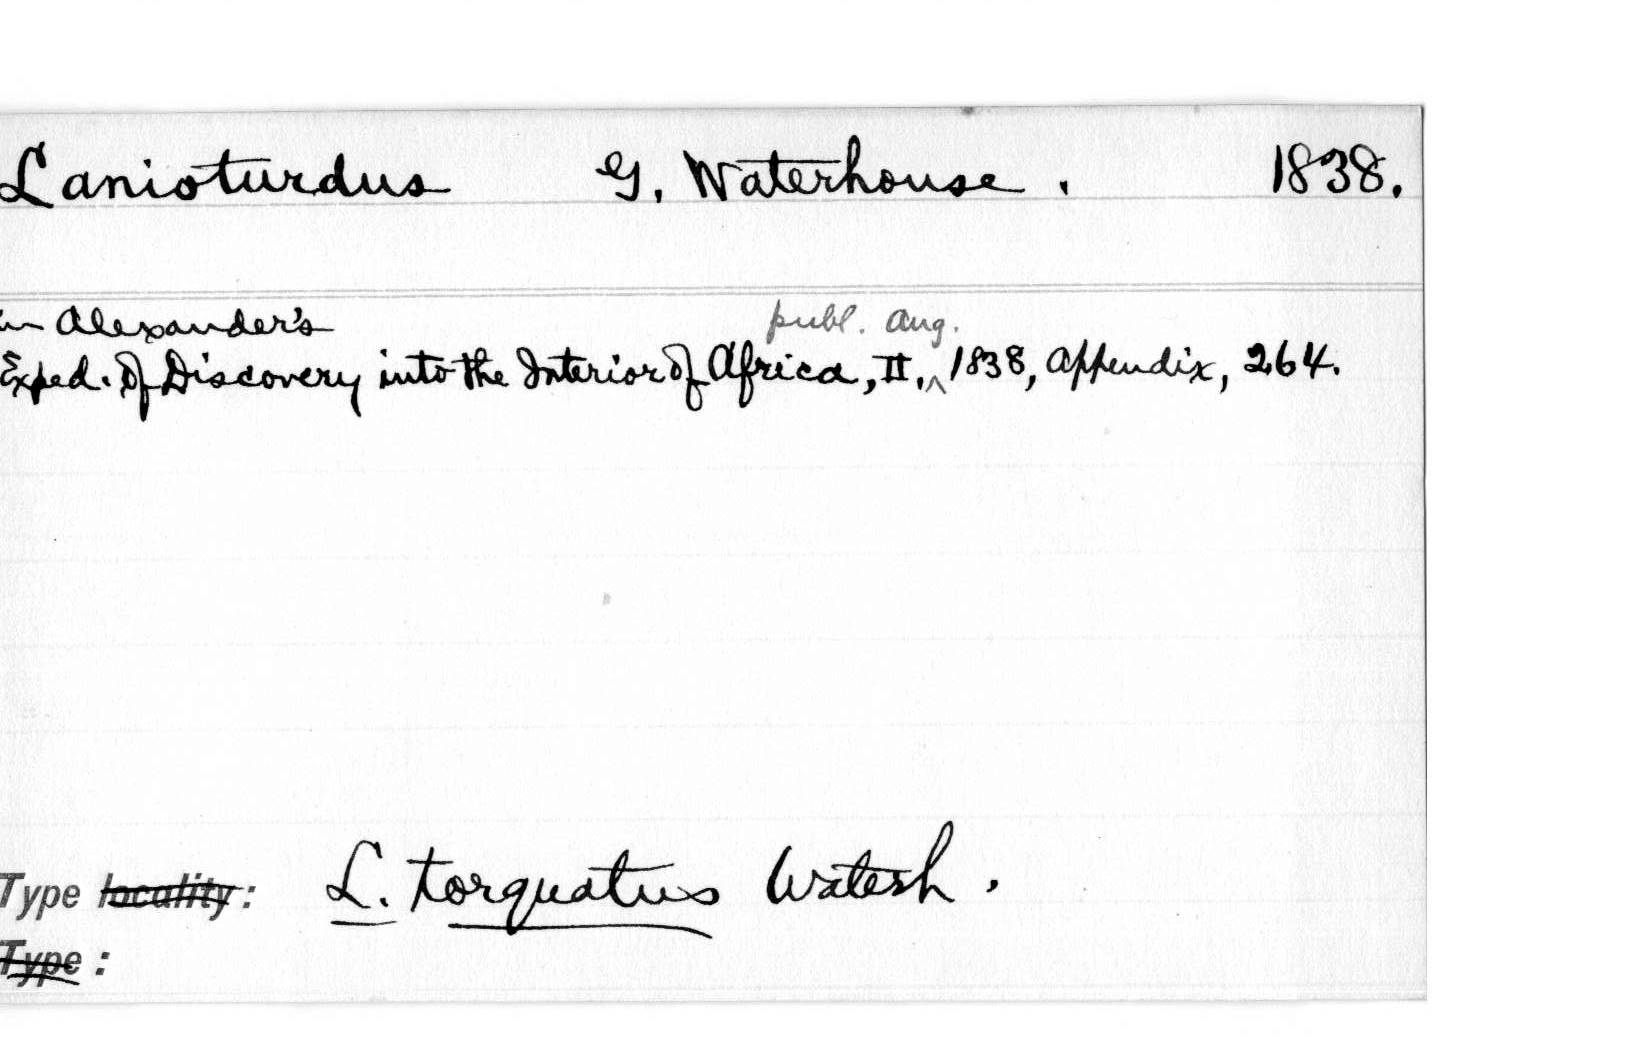 Lanioturdus G. Waterhouse. 1838.
in Alexander's
publ. Aug.
Exped. of Discovery into the Interior of Africa, II, ^ 1838, Appendix, 264.
Type locality: L. torquatus Waterh.
Type: